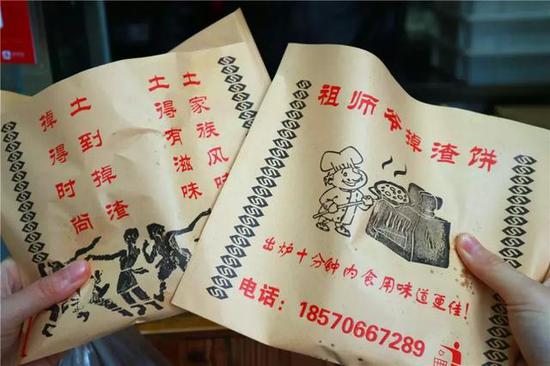 土家族风味
土得有滋味
土到掉渣
掉得时尚
祖师爷掉渣饼
出炉十分钟内食用味道更佳！
电话：18570667289